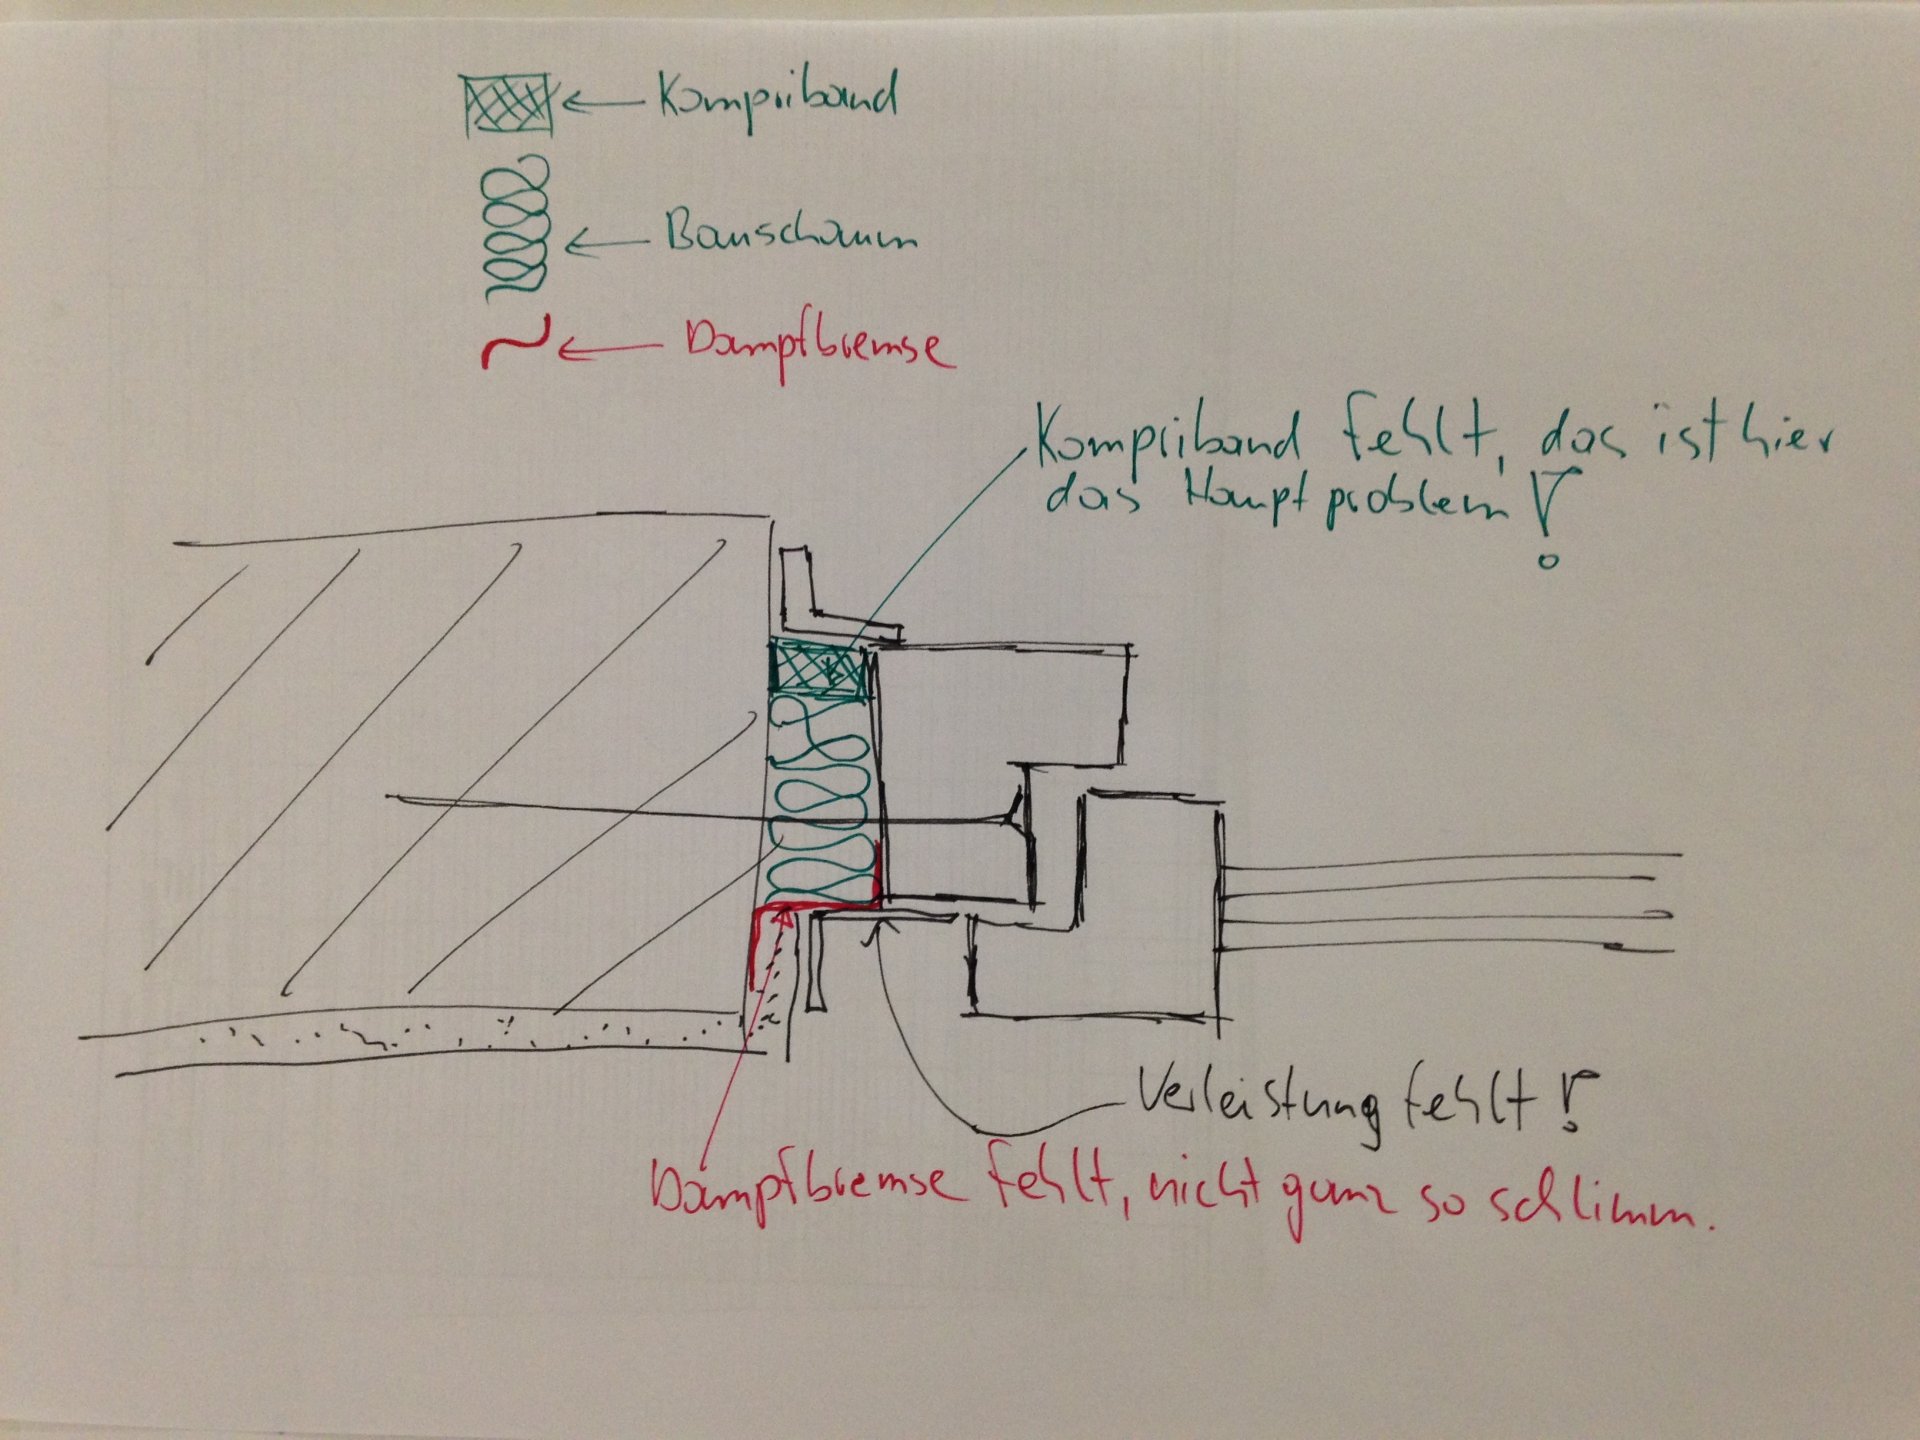 Kompriband
Bauschaum
Dampfbremse
Kompriband fehlt, das ist hier
das Hauptproblem!
Verleistung fehlt!
Dampfbremse fehlt, nicht ganz so schlimm.